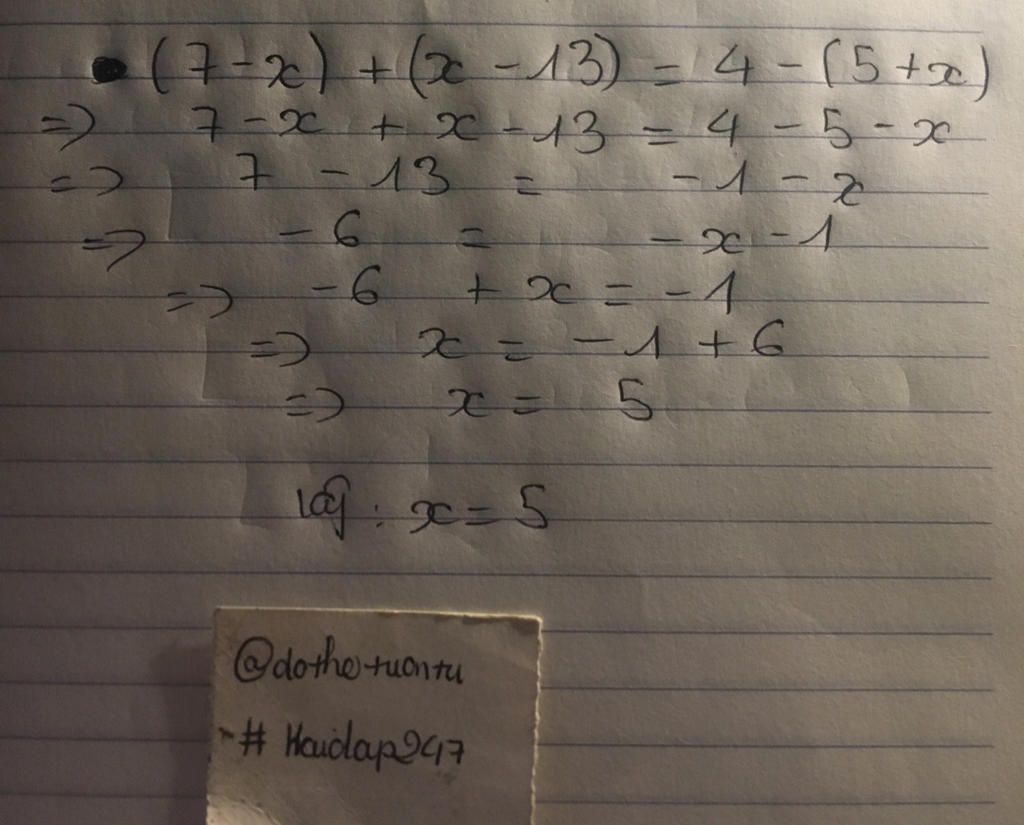 (7 - x) + (x - 13) = 4 - (5 + x)
=> 7 - x + x - 13 = 4 - 5 - x
=> 7 - 13 = - 1 - x
=> - 6 = - x - 1
=> - 6 + x = - 1
=> x = - 1 + 6
=> x = 5
Vậy : x = 5
@dothetuantu
# Hoidap247